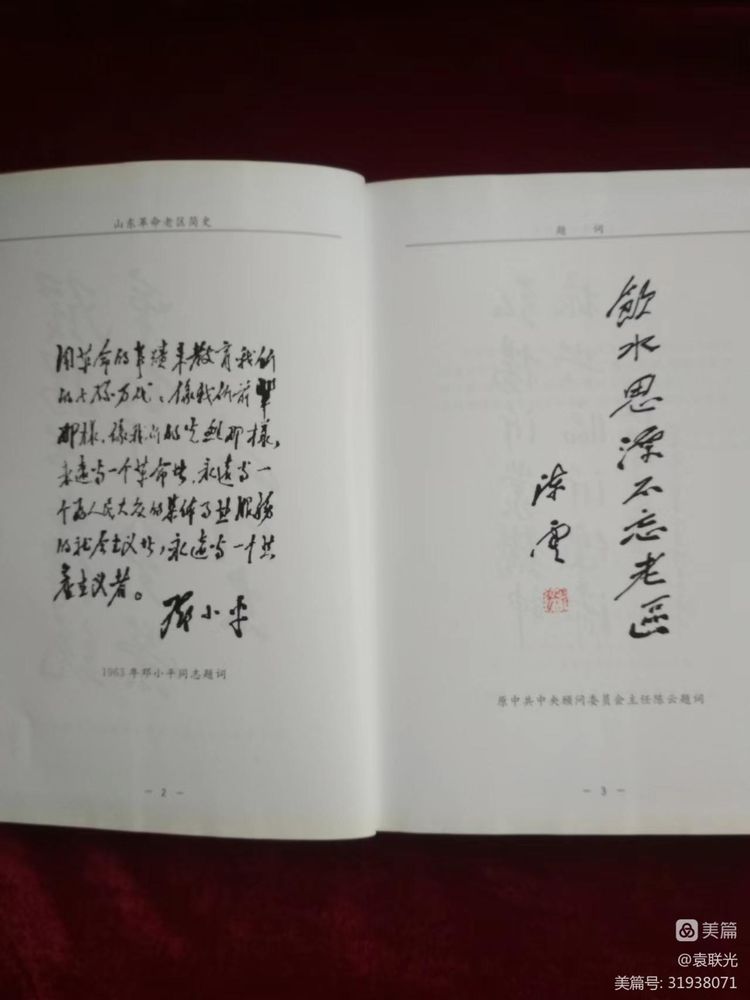 山东革命老区简史
用革命的事蹟来教育我们
的子孙万代,像我们前辈
那样,像我们的先烈那样,
永远当一个革命者,永远当一
个为人民大众的集体事业服务
的社会主义者,永远当一个共
产主义者。
邓小平
1963年邓小平同志题词
－ 2 －
题 词
飲水思源不忘老區
陈雲
原中共中央顾问委员会主任陈云题词
－ 3 －
美篇
@袁联光
美篇号: 31938071